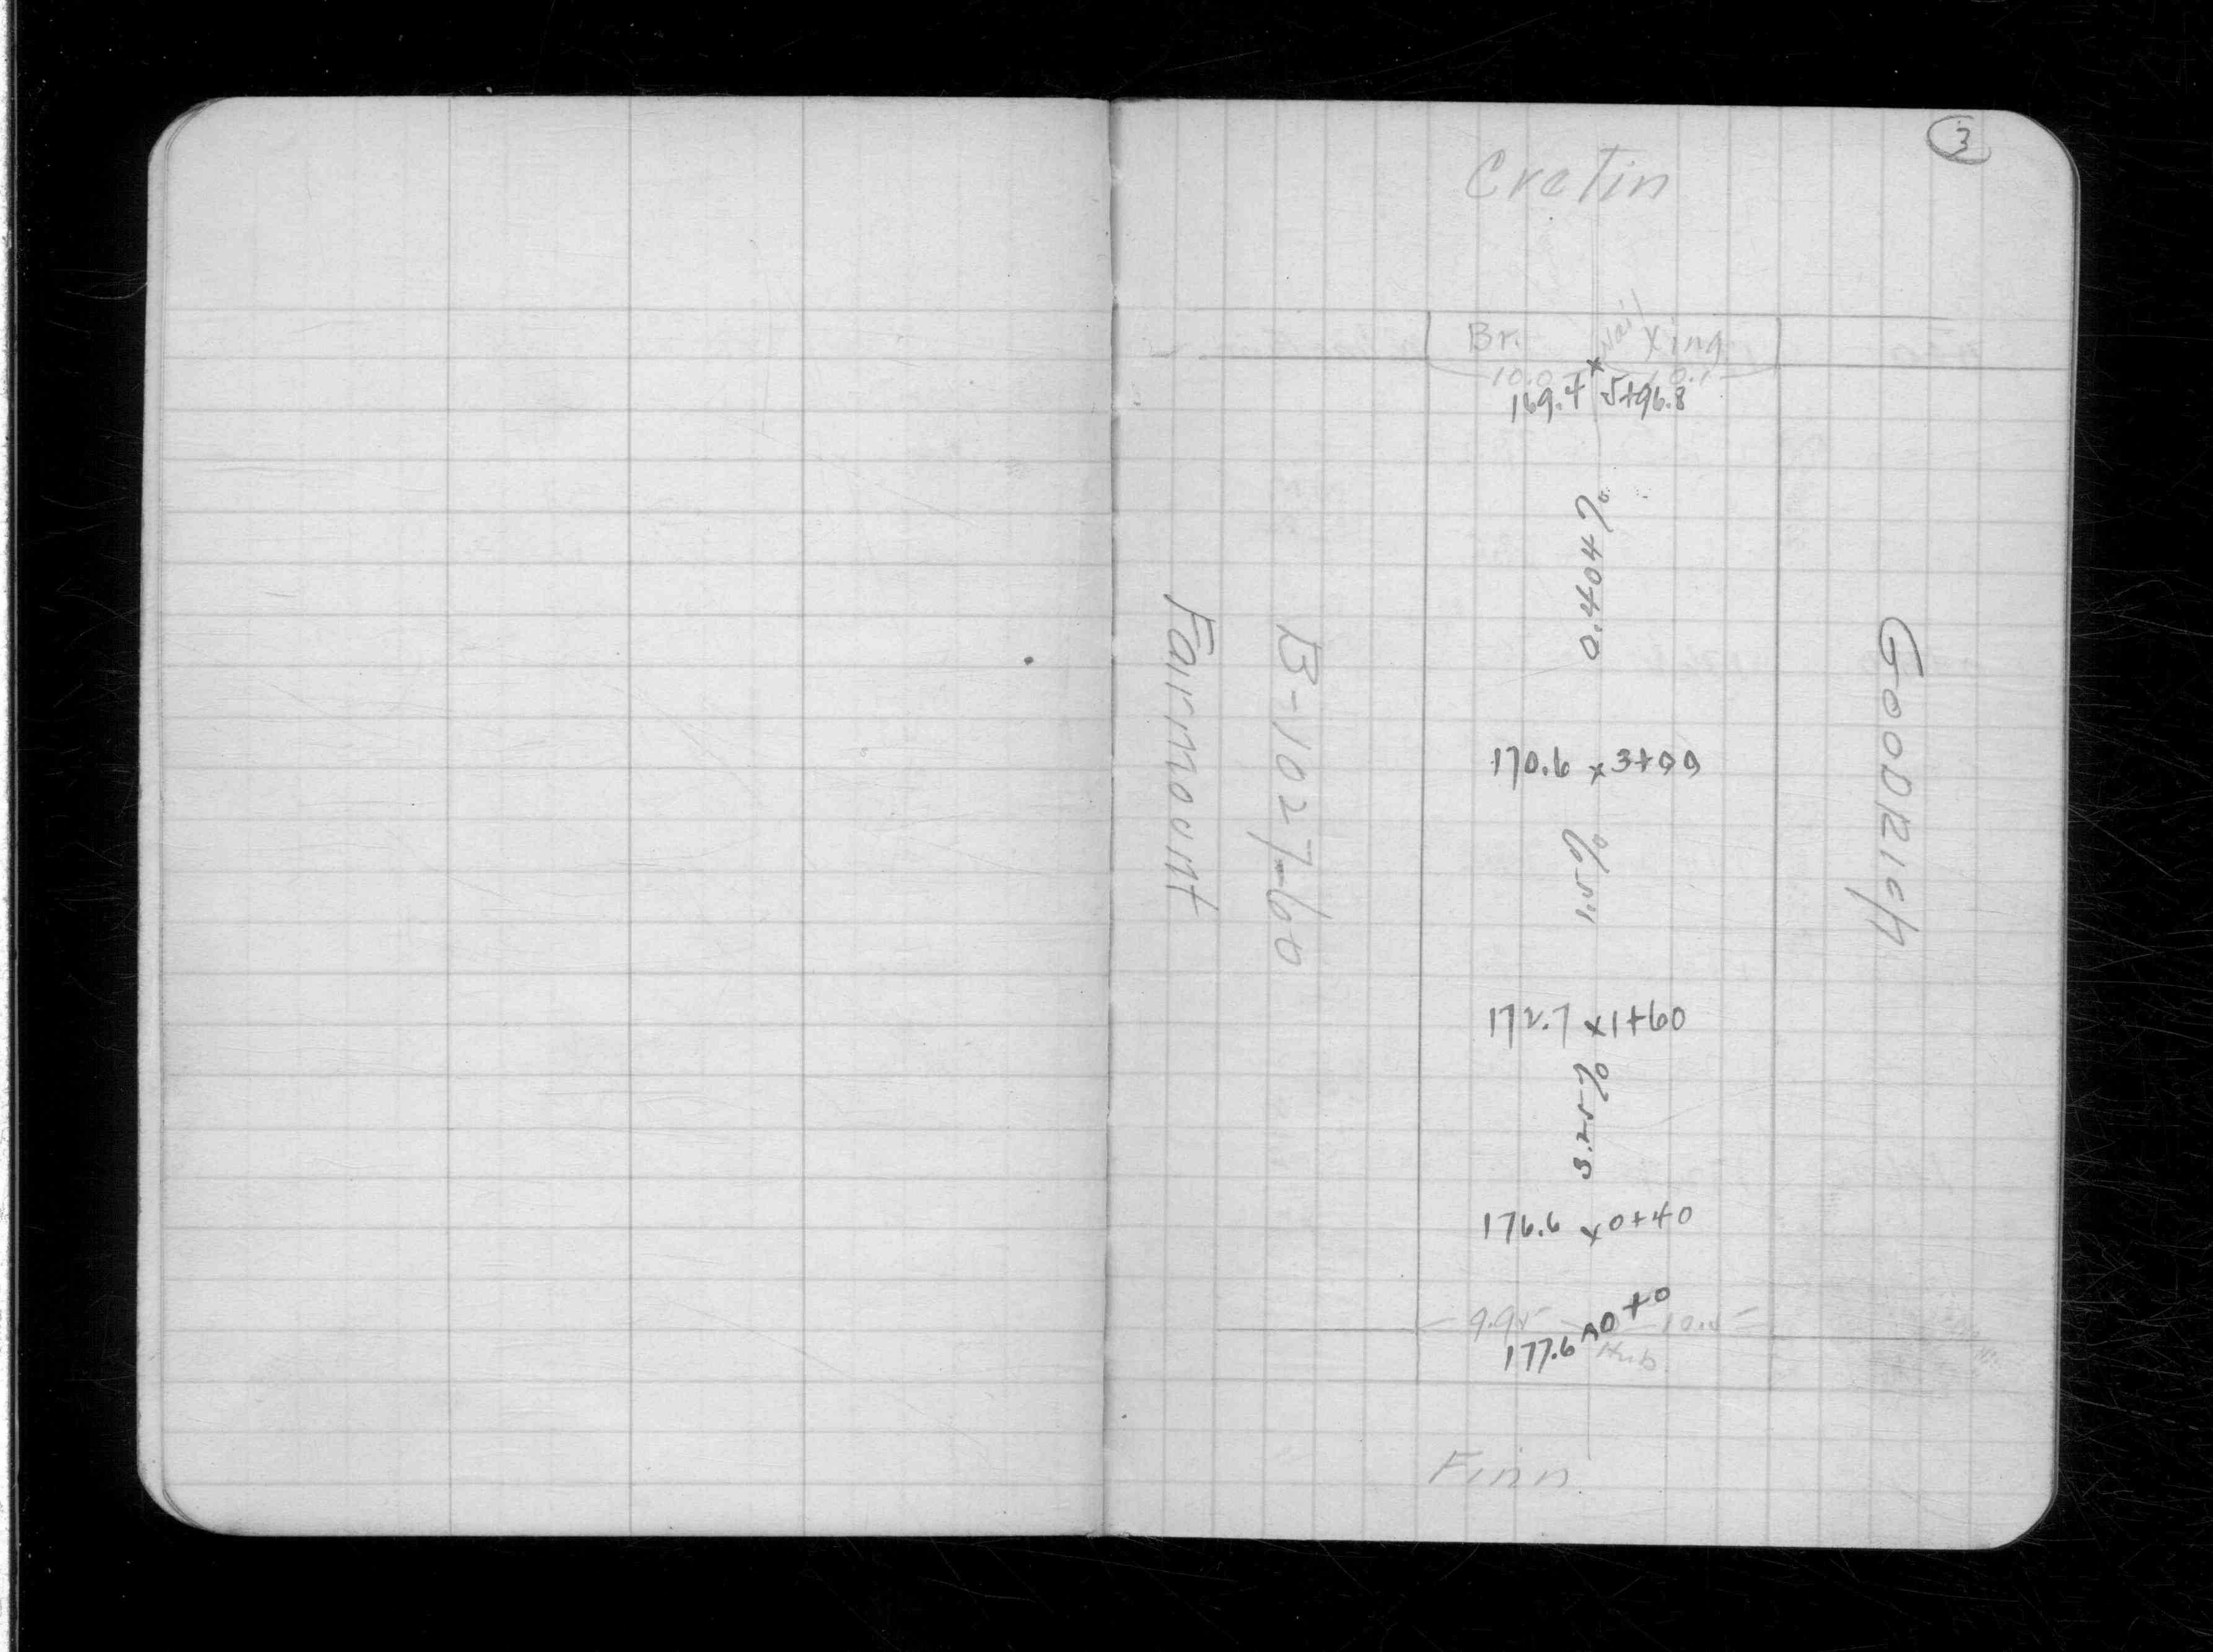 3
Cretin
Br. Nail Xing
10.0 10.1
169.4 x 5+96.8
0.404%
170.6 x 3+00
1.5%
172.7 x 1+60
3.25%
176.6 x 0+40
9.95 0+0
177.6 Hub.
Finn
Fairmount
B-1027-60
GOODRICH